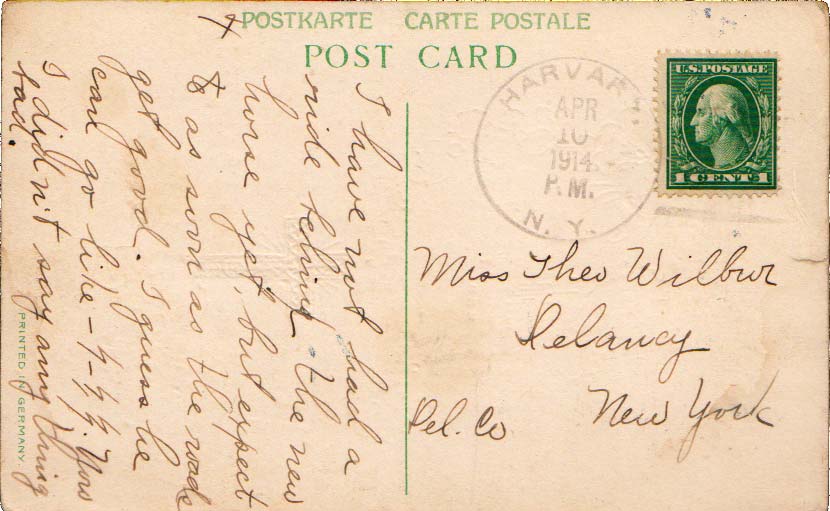 POSTKARTE CARTE POSTALE
POST CARD
HARVARD
APR
10
1914
P.M.
N. Y.
U.S. POSTAGE
1 CENT 1
I have not had a
ride behind the new
horse yet, but expect
to as soon as the roads
get good. I guess he
can go like - - . You
I didn't say any thing
bad.
Miss Theo Wilbur
Delancy
New York
Del. Co
PRINTED IN GERMANY.